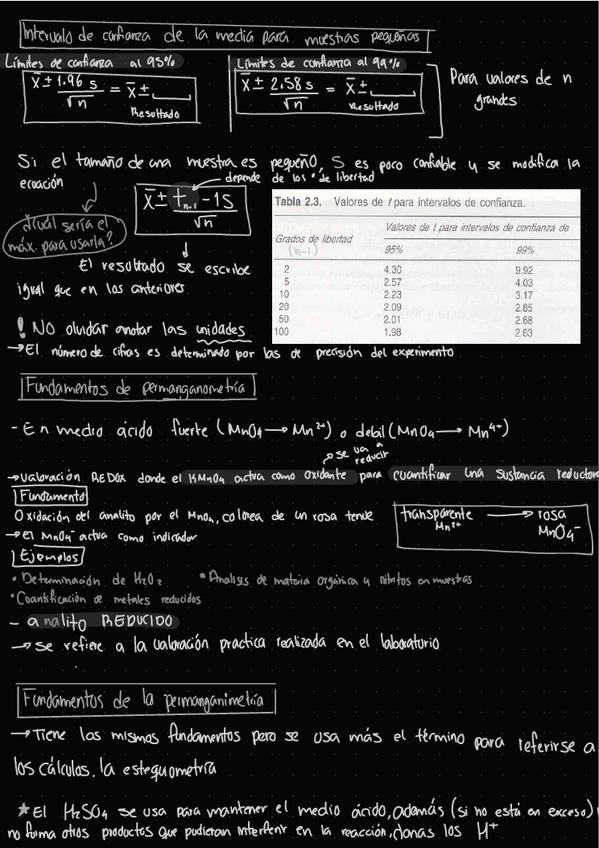 Intervalo de confianza de la media para muestras pequeñas
Límites de confianza al 95%
X̄ ± 1.96 s / √n = X̄ ± ___
Resultado
Límites de confianza al 99%
X̄ ± 2.58 s / √n = X̄ ± ___
Resultado
Para valores de n
grandes
Si el tamaño de una muestra es pequeño, S es poco confiable y se modifica la
ecuación
depende
de los ° de libertad
X̄ ± t n-1 - 1S / √n
¿Cuál sería el
máx. para usarla?
El resultado se escribe
igual que en los anteriores
Tabla 2.3. Valores de t para intervalos de confianza.
Valores de t para intervalos de confianza de
Grados de libertad
(n-1)
95% 99%
2 4.30 9.92
5 2.57 4.03
10 2.23 3.17
20 2.09 2.85
50 2.01 2.68
100 1.98 2.63
! NO olvidar anotar las unidades
→ El número de cifras es determinado por las de precisión del experimento
Fundamentos de permanganometría
- En medio ácido fuerte (MnO4 → Mn²⁺) o debil (MnO4 → Mn⁴⁺)
→ se va a
reducir
→ valoración REDOX donde el KMnO4 actua como oxidante para cuantificar una sustancia reductora
Fundamento
Oxidación del analito por el MnO4, colorea de un rosa tenue
→ el MnO4⁻ actua como indicador
transparente → rosa
Mn²⁺ MnO4⁻
Ejemplos
• Determinación de H2O2 • Analisis de materia orgánica y nitritos en muestras
• Cuantificación de metales reducidos
- analito REDUCIDO
→ se refiere a la valoración practica realizada en el laboratorio
Fundamentos de la permanganimetría
→ Tiene los mismos fundamentos pero se usa más el término para referirse a
los cálculos, la estequometría
★ El H2SO4 se usa para mantener el medio ácido, además (si no está en exceso)
no forma otros productos que pudieran interferir en la reacción, donas los H⁺